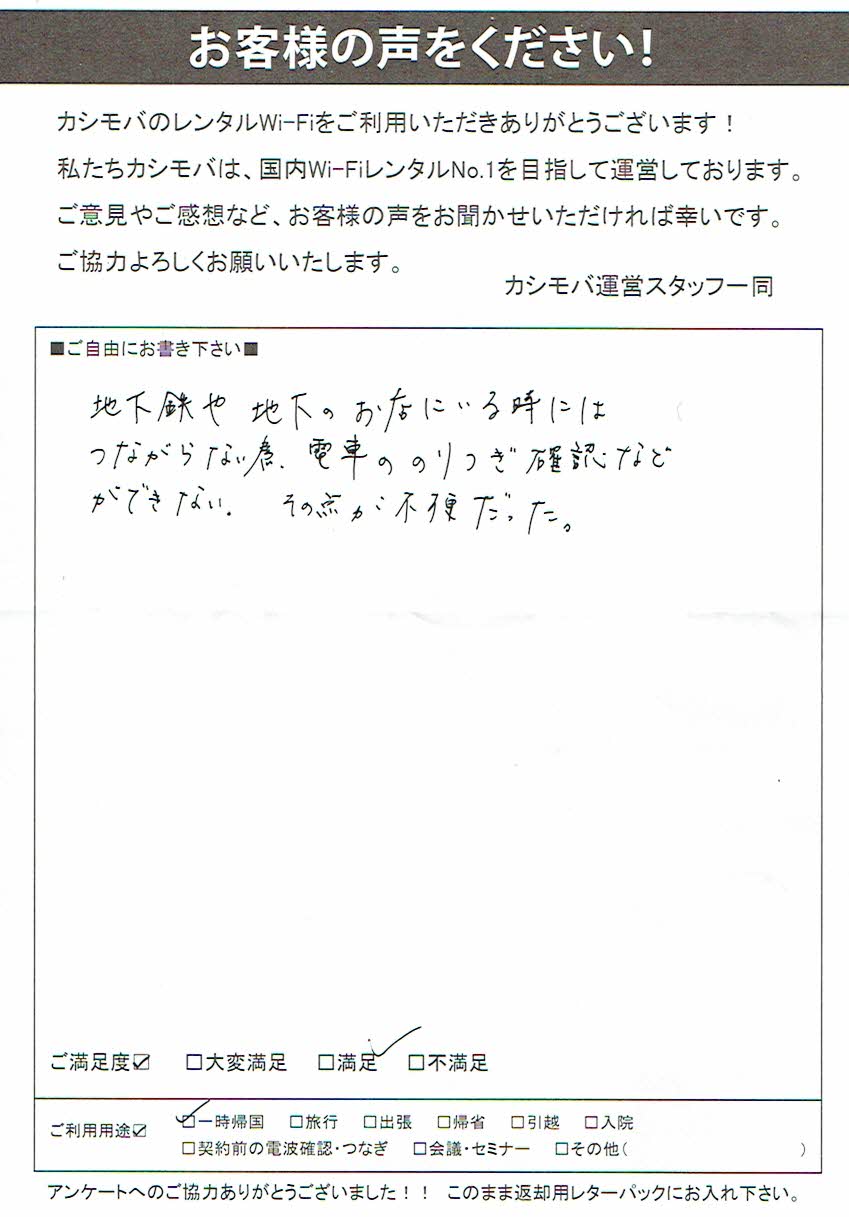 お客様の声をください!
カシモバのレンタルWi-Fiをご利用いただきありがとうございます！
私たちカシモバは、国内Wi-FiレンタルNo.1を目指して運営しております。
ご意見やご感想など、お客様の声をお聞かせいただければ幸いです。
ご協力よろしくお願いいたします。
カシモバ運営スタッフ一同
■ご自由にお書き下さい■
地下鉄や 地下のお店にいる時には
つながらない為、電車ののりつぎ確認など
ができない。 その点が不便だった。
ご満足度☑ □大変満足 □満足 □不満足
ご利用用途☑ □一時帰国 □旅行 □出張 □帰省 □引越 □入院
□契約前の電波確認・つなぎ □会議・セミナー □その他( )
アンケートへのご協力ありがとうございました！！ このまま返却用レターパックにお入れ下さい。